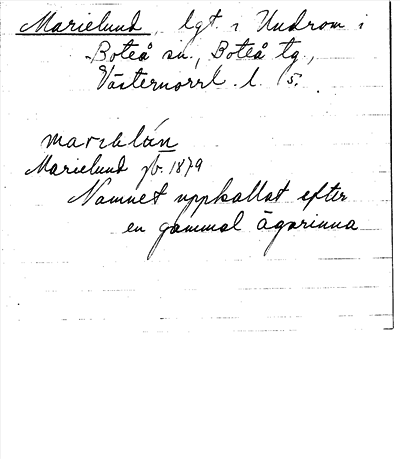 Marielund, lgt. i Undrom i
Boteå sn., Boteå tg.,
Västernorrl. l. 5.
Marielund jb. 1879
Namnet uppkallat efter
en gammal ägarinna